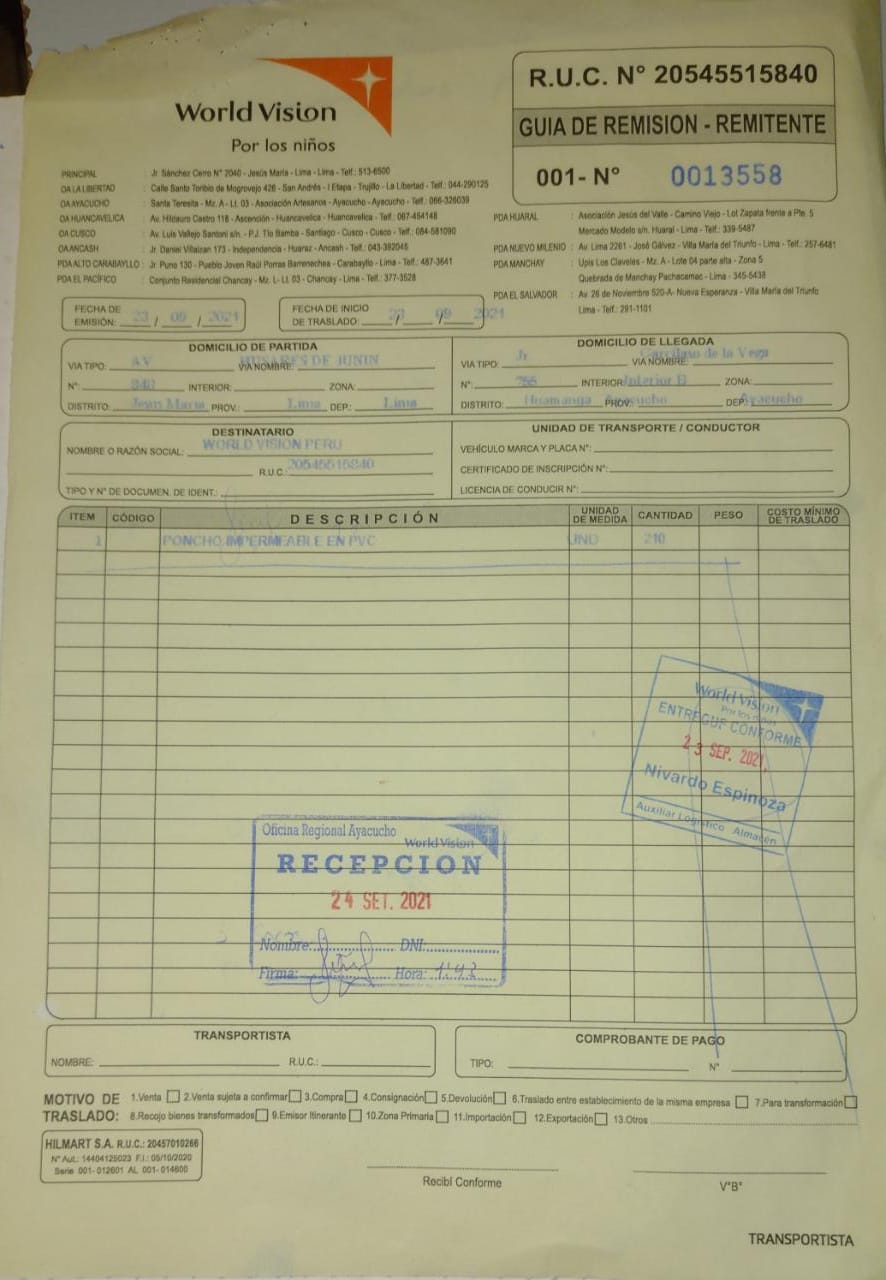 World Vision
Por los niños
R.U.C. N° 20545515840
GUIA DE REMISION - REMITENTE
001- N° 0013558
PRINCIPAL : Jr. Sánchez Cerro N° 2040 - Jesús María - Lima - Lima - Telf.: 513-6500
OA LA LIBERTAD : Calle Santo Toribio de Mogrovejo 426 - San Andrés - I Etapa - Trujillo - La Libertad - Telf.: 044-290125
OA AYACUCHO : Santa Teresita - Mz. A - Lt. 03 - Asociación Artesanos - Ayacucho - Ayacucho - Telf.: 066-326039
OA HUANCAVELICA : Av. Hildauro Castro 118 - Ascención - Huancavelica - Huancavelica - Telf.: 067-454148
OA CUSCO : Av. Luis Vallejo Santoni s/n. - P.J. Tío Bamba - Santiago - Cusco - Cusco - Telf.: 084-581090
OA ANCASH : Jr. Daniel Villaizan 173 - Independencia - Huaraz - Ancash - Telf.: 043-392046
PDA ALTO CARABAYLLO : Jr. Puno 130 - Pueblo Joven Raúl Porras Barrenechea - Carabayllo - Lima - Telf.: 487-3641
PDA EL PACÍFICO : Conjunto Residencial Chancay - Mz. L- Ll. 03 - Chancay - Lima - Telf.: 377-3528
PDA HUARAL : Asociación Jesús del Valle - Camino Viejo - Lot Zapata frente a Pte. 5
Mercado Modelo s/n. Huaral - Lima - Telf.: 339-5487
PDA NUEVO MILENIO : Av. Lima 2261 - José Gálvez - Villa María del Triunfo - Lima - Telf.: 257-6481
PDA MANCHAY : Upis Los Claveles - Mz. A - Lote 04 parte alta - Zona 5
Quebrada de Manchay Pachacamac - Lima - 345-5438
PDA EL SALVADOR : Av. 26 de Noviembre 520-A- Nueva Esperanza - Villa María del Triunfo
Lima - Telf.: 291-1101
FECHA DE EMISIÓN: 23 / 09 / 2021
FECHA DE INICIO DE TRASLADO: 23 / 09 / 2021
DOMICILIO DE PARTIDA
VIA TIPO: AV VIA NOMBRE: HUSARES DE JUNIN
N°: 840 INTERIOR: ZONA:
DISTRITO: Jesus Maria PROV.: Lima DEP.: Lima
DOMICILIO DE LLEGADA
VIA TIPO: Jr VIA NOMBRE: Garcilaso de la Vega
N°: 755 INTERIOR: Interior B ZONA:
DISTRITO: Huamanga PROV.: Ayacucho DEP.: Ayacucho
DESTINATARIO
NOMBRE O RAZÓN SOCIAL: WORLD VISION PERU
R.U.C.: 20545515840
TIPO Y N° DE DOCUMEN. DE IDENT.:
UNIDAD DE TRANSPORTE / CONDUCTOR
VEHÍCULO MARCA Y PLACA N°:
CERTIFICADO DE INSCRIPCIÓN N°:
LICENCIA DE CONDUCIR N°:
ITEM CÓDIGO DESCRIPCIÓN UNIDAD DE MEDIDA CANTIDAD PESO COSTO MÍNIMO DE TRASLADO
1 PONCHO IMPERMEABLE EN PVC UND 210
World Vision
Por los niños
ENTREGUE CONFORME
23 SEP. 2021
Nivardo Espinoza
Auxiliar Logístico Almacén
Oficina Regional Ayacucho
World Vision
RECEPCION
24 SET. 2021
Nombre: DNI:
Firma: Hora: 1:42
TRANSPORTISTA
NOMBRE: R.U.C.:
COMPROBANTE DE PAGO
TIPO: N°
MOTIVO DE TRASLADO: 1.Venta 2.Venta sujeta a confirmar 3.Compra 4.Consignación 5.Devolución 6.Traslado entre establecimiento de la misma empresa 7.Para transformación
8.Recojo bienes transformados 9.Emisor Itinerante 10.Zona Primaria 11.Importación 12.Exportación 13.Otros
HILMART S.A. R.U.C.: 20457010266
N° Aut.: 14404125023 F.I.: 05/10/2020
Serie 001- 012601 AL 001- 014600
Recibí Conforme
V°B°
TRANSPORTISTA